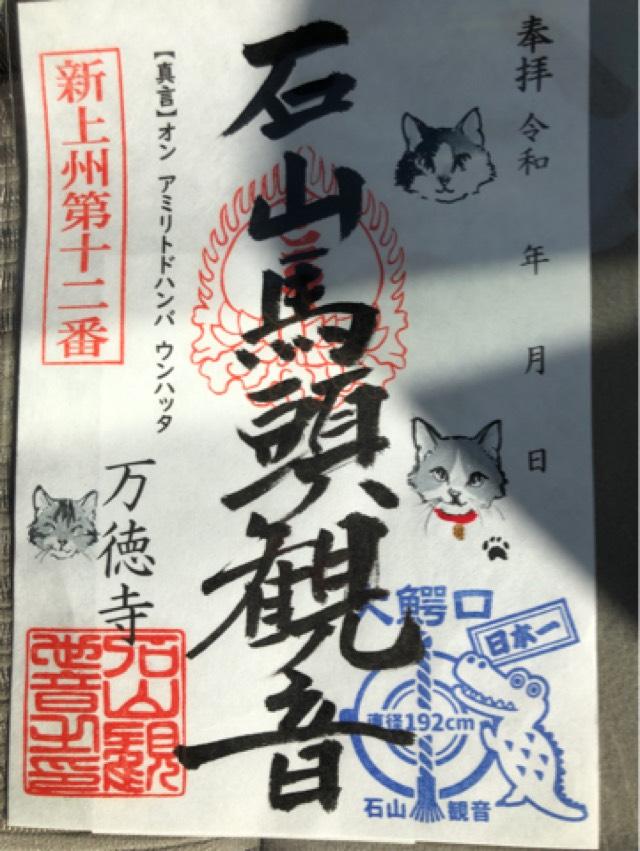 奉拝 令和 年 月 日
石山馬頭観音
【真言】オン アミリトドハンバ ウンハッタ
新上州第十二番
万徳寺
大鰐口
日本一
直径192cm
石山 観音